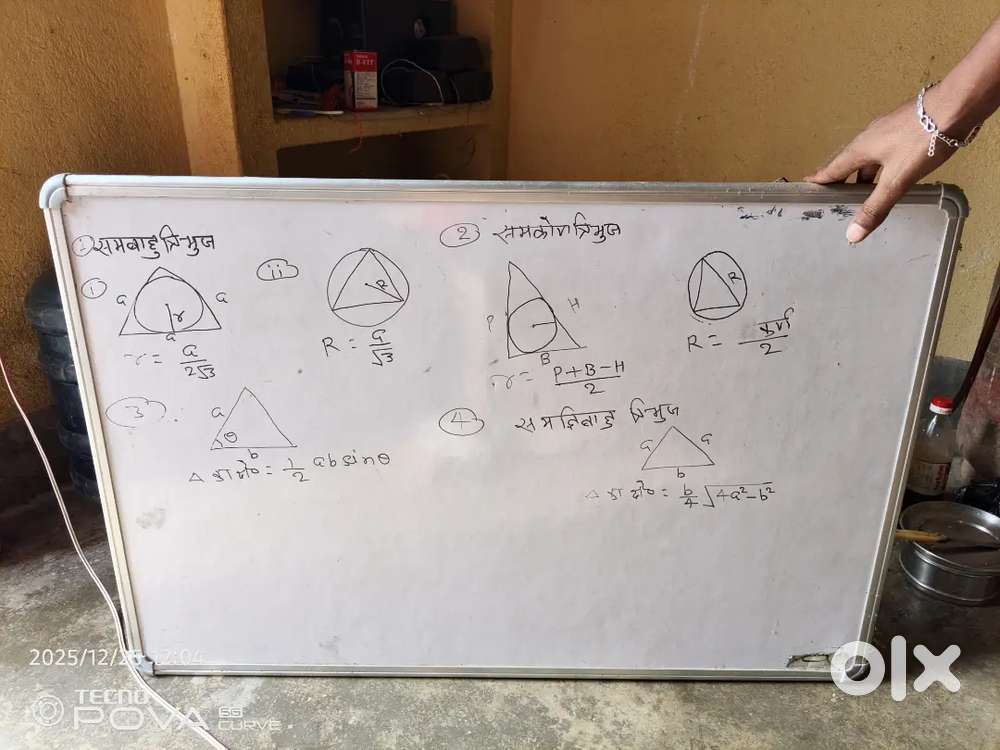 ① समबाहु त्रिभुज
i
a
a
r
a
r = a/2√3
ii
R
R = a/√3
② समकोण त्रिभुज
P
H
B
r = P+B-H/2
R
R = कर्ण/2
3
a
θ
b
△ का क्षे० = 1/2 ab sinθ
4 समद्विबाहु त्रिभुज
a
a
b
△ का क्षे० = b/4 √4a²-b²
olx
2025/12/2
TECNO
POVA
5G
CURVE